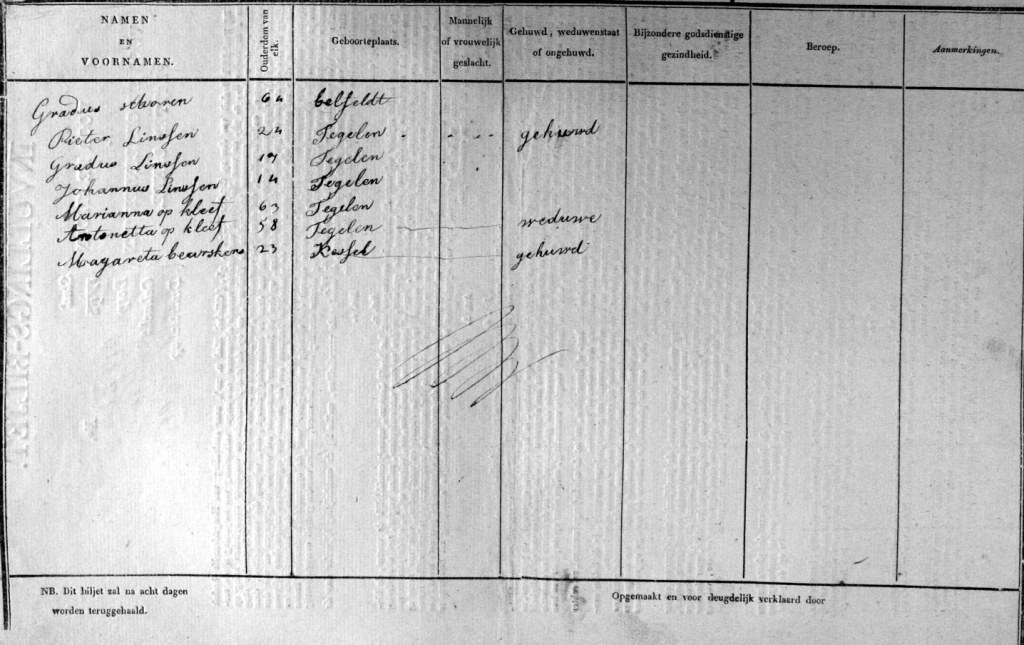 NAMEN EN VOORNAMEN. Ouderdom van elk. Geboorteplaats. Mannelijk of vrouwelijk geslacht. Gehuwd, weduwenstaat of ongehuwd. Bijzondere godsdienstige gezindheid. Beroep. Aanmerkingen.
Gradus 64 belfeldt
Pieter Linssen 24 Tegelen gehuwd
Gradus Linssen 17 Tegelen
Johannus Linssen 14 Tegelen
Marianna op kleef 63 Tegelen
Antonetta op kleef 58 Tegelen weduwe
Magareta beurskens 23 Kessel gehuwd
NB. Dit biljet zal na acht dagen
worden teruggehaald.
Opgemaakt en voor deugdelijk verklaard door